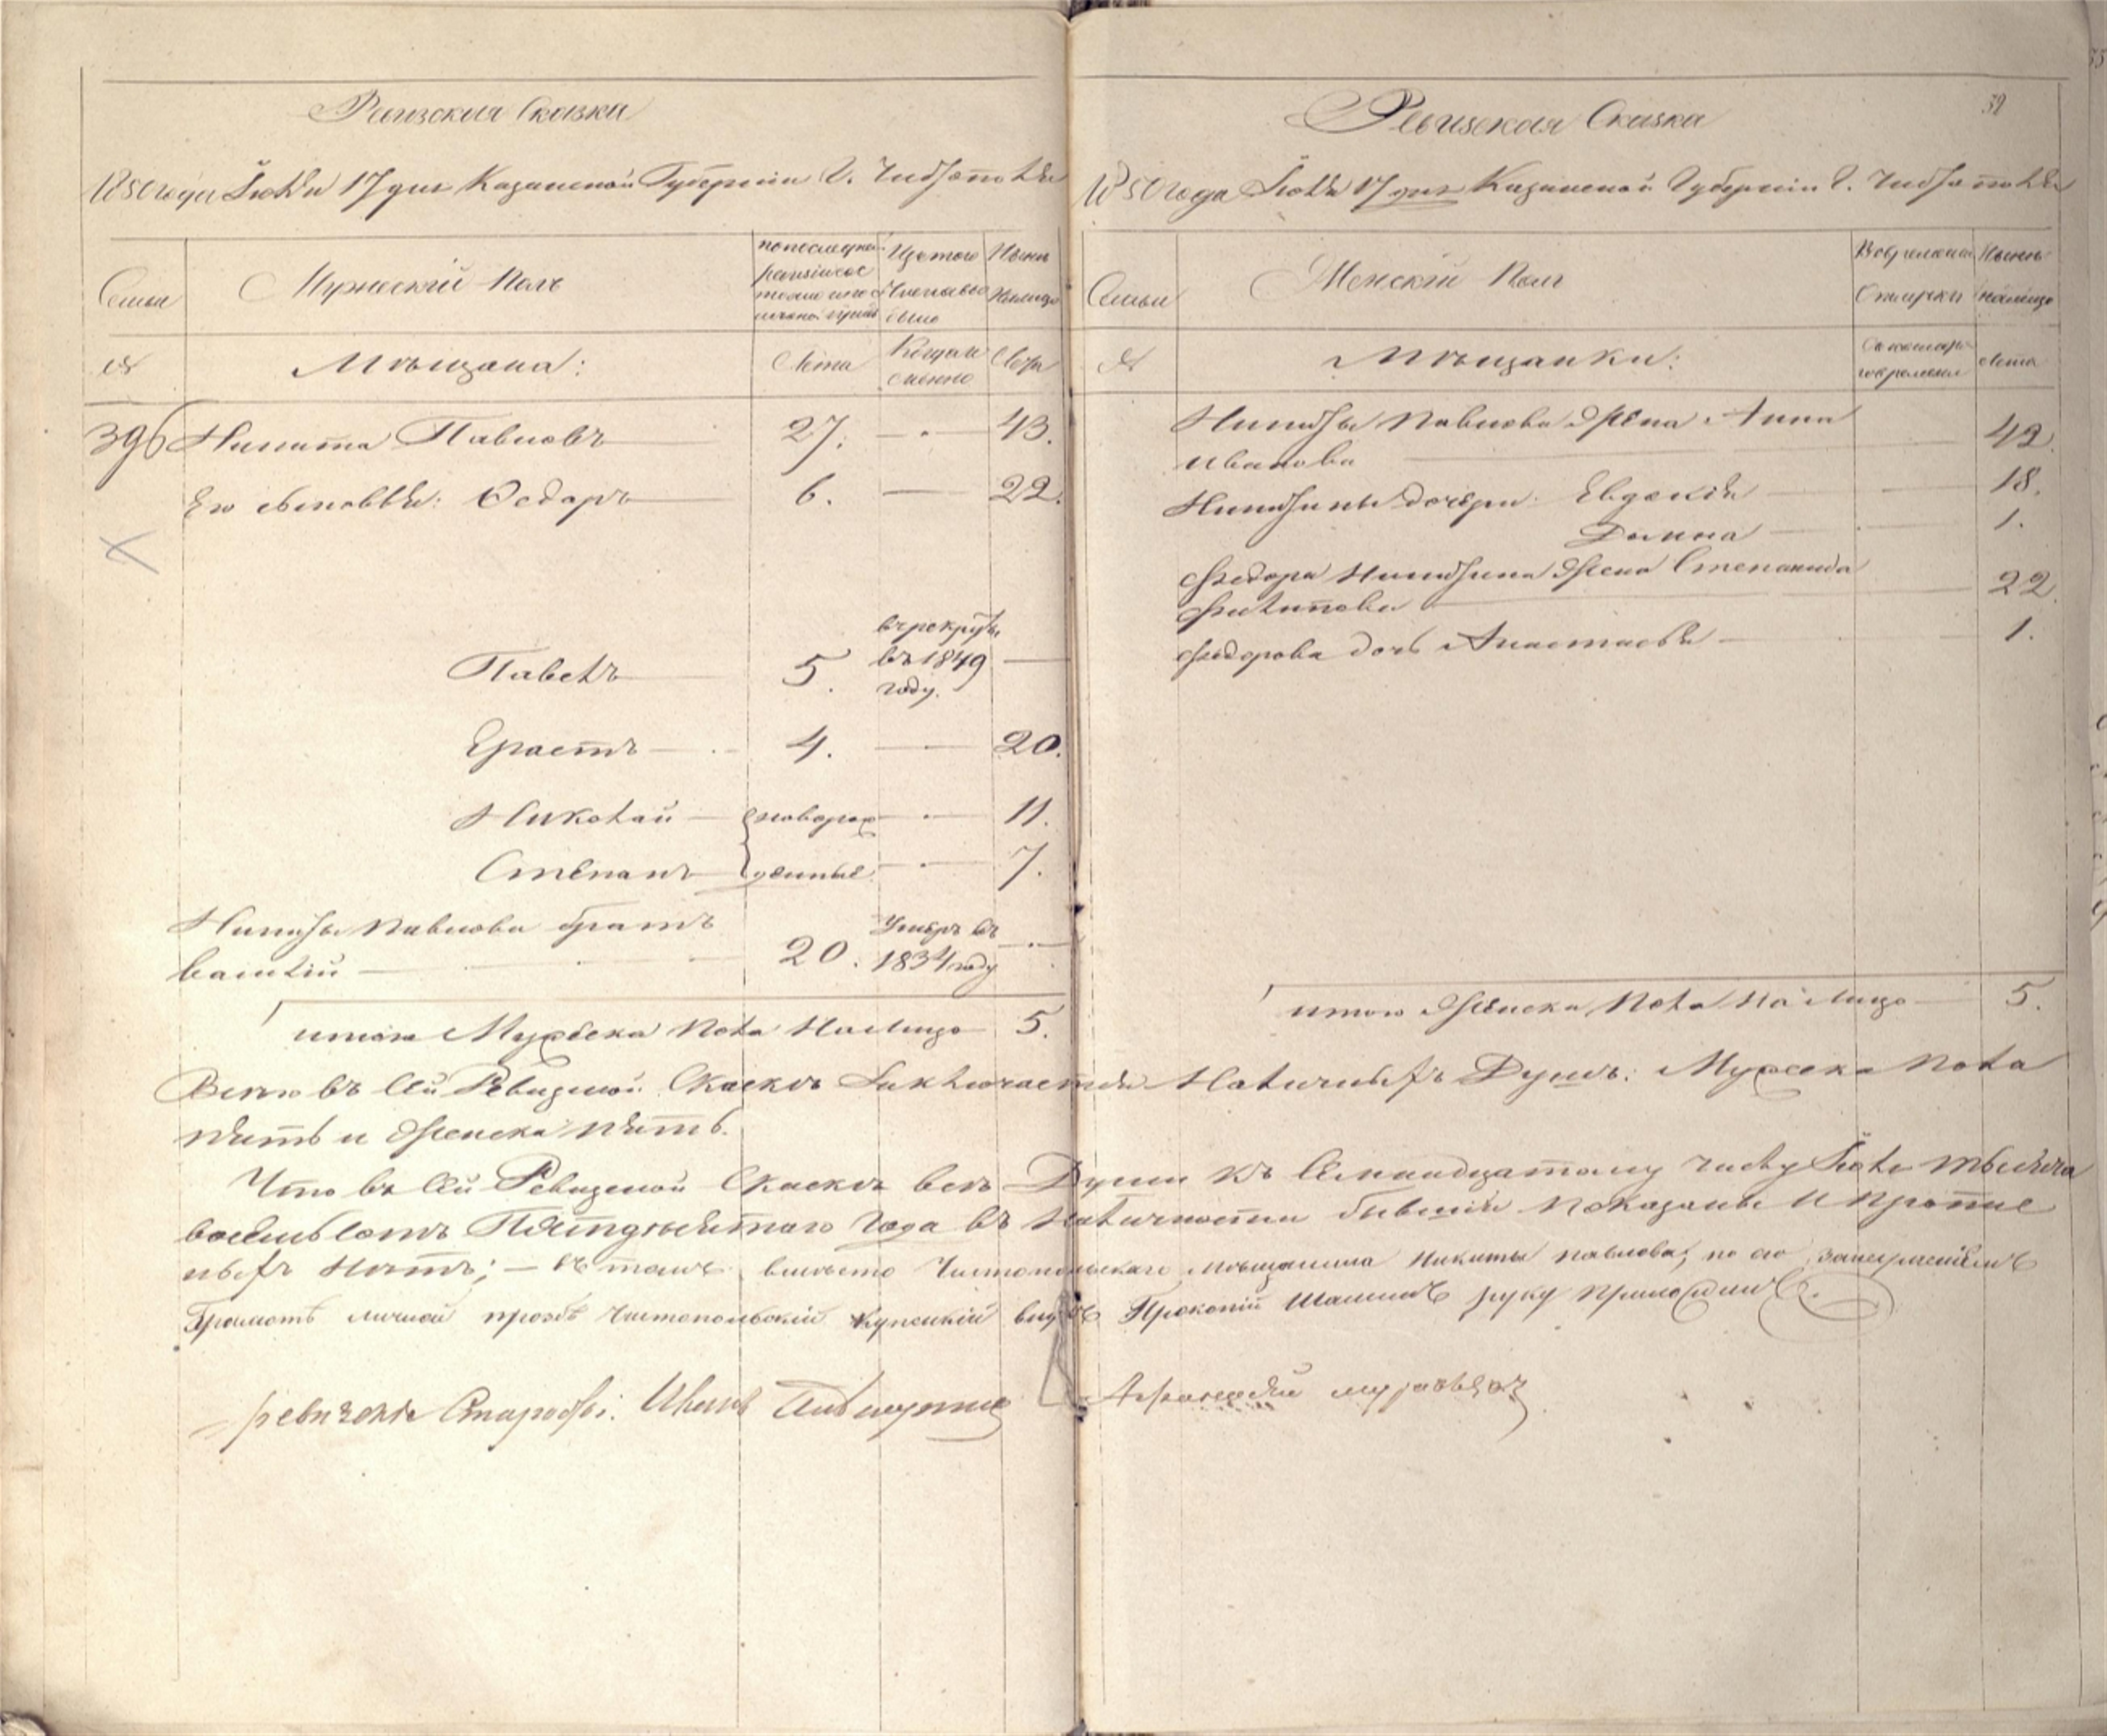 Ревизская Сказка
1850 года Июля 17 дня Казанской Губернии Г. Чистополя
Семьи
Мужеский Полъ
Изъ того числа выбыло
Ныне налицо
№
Мѣщана:
Лета
Когда именно
Лета
396 Никита Павловъ 27. — 43.
Его сыновья: Ѳедоръ 6. — 22.
Павелъ 5. въ рекруты въ 1849 году. —
Ерастъ 4. — 20.
Николай новорож — 11.
Степанъ денные — 7.
Никиты Павлова братъ
Василий 20. Умеръ въ 1834 году —
итого Мужеска пола на лицо 5.
59
Ревизская Сказка
1850 года Июля 17 дня Казанской Губернии Г. Чистополя
Семьи
Женский Полъ
Во временной Отлучке
Ныне налицо
№
Мѣщанки:
Съ котораго времени
Лета
Никиты Павлова жена Анна
Иванова — 42.
Никитины дочери Евдокия — 18.
Домна — 1.
Федора Никитина жена Степанида
Филипова — 22.
Федорова дочь Анастасья — 1.
итого женска пола на лицо 5.
Всего въ сей Ревизской Сказкѣ Заключается Наличныхъ Душъ: Мужска пола
пять и женска пять.
Что въ сей Ревизской Сказкѣ всѣ Души къ Семнадцатому числу Июля тысяча
восемьсотъ Пятьдесятаго года въ наличности бывшия показаны и прописныхъ
нѣтъ; — въ томъ вместо Чистопольскаго мѣщанина Никиты Павлова, по его
Грамотѣ личной прозбѣ Чистопольский Купецкий внукъ Прокопий Шашинъ руку приложилъ.
ревизския Старосты: Иванъ